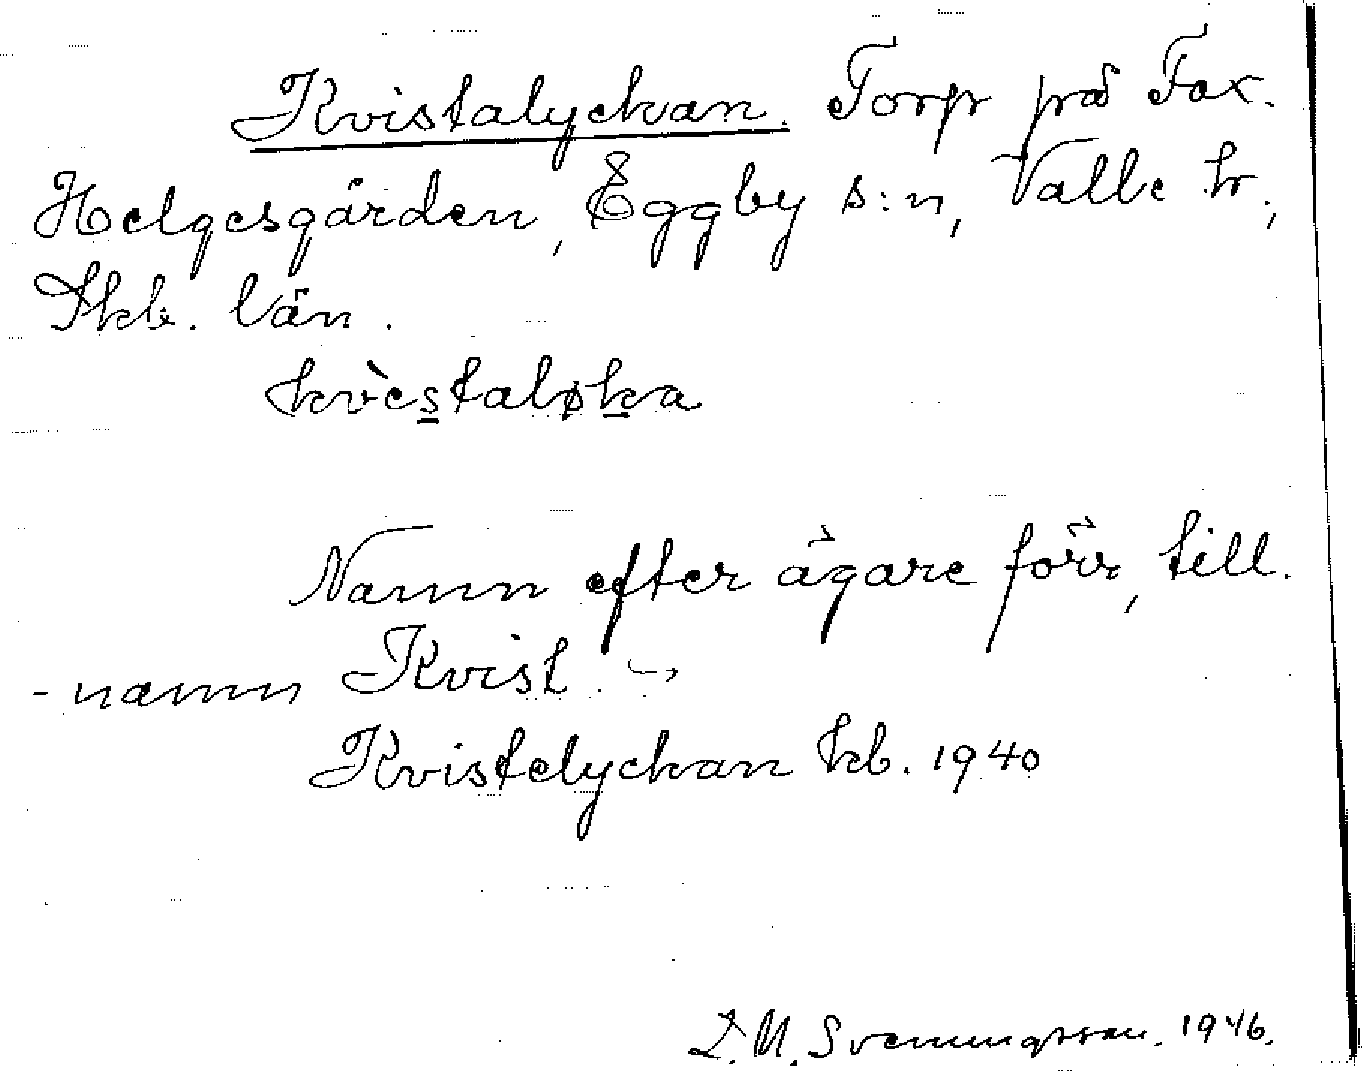 Kvistalyckan. Torp på Fax.
Helgesgården, Eggby s:n, Valle hr.,
Skb. län.
kvèstaløka
Namn efter ägare förr, till.
-namn Kvist.
Kvistelyckan kb. 1940
L.M. Svenungsson. 1946.